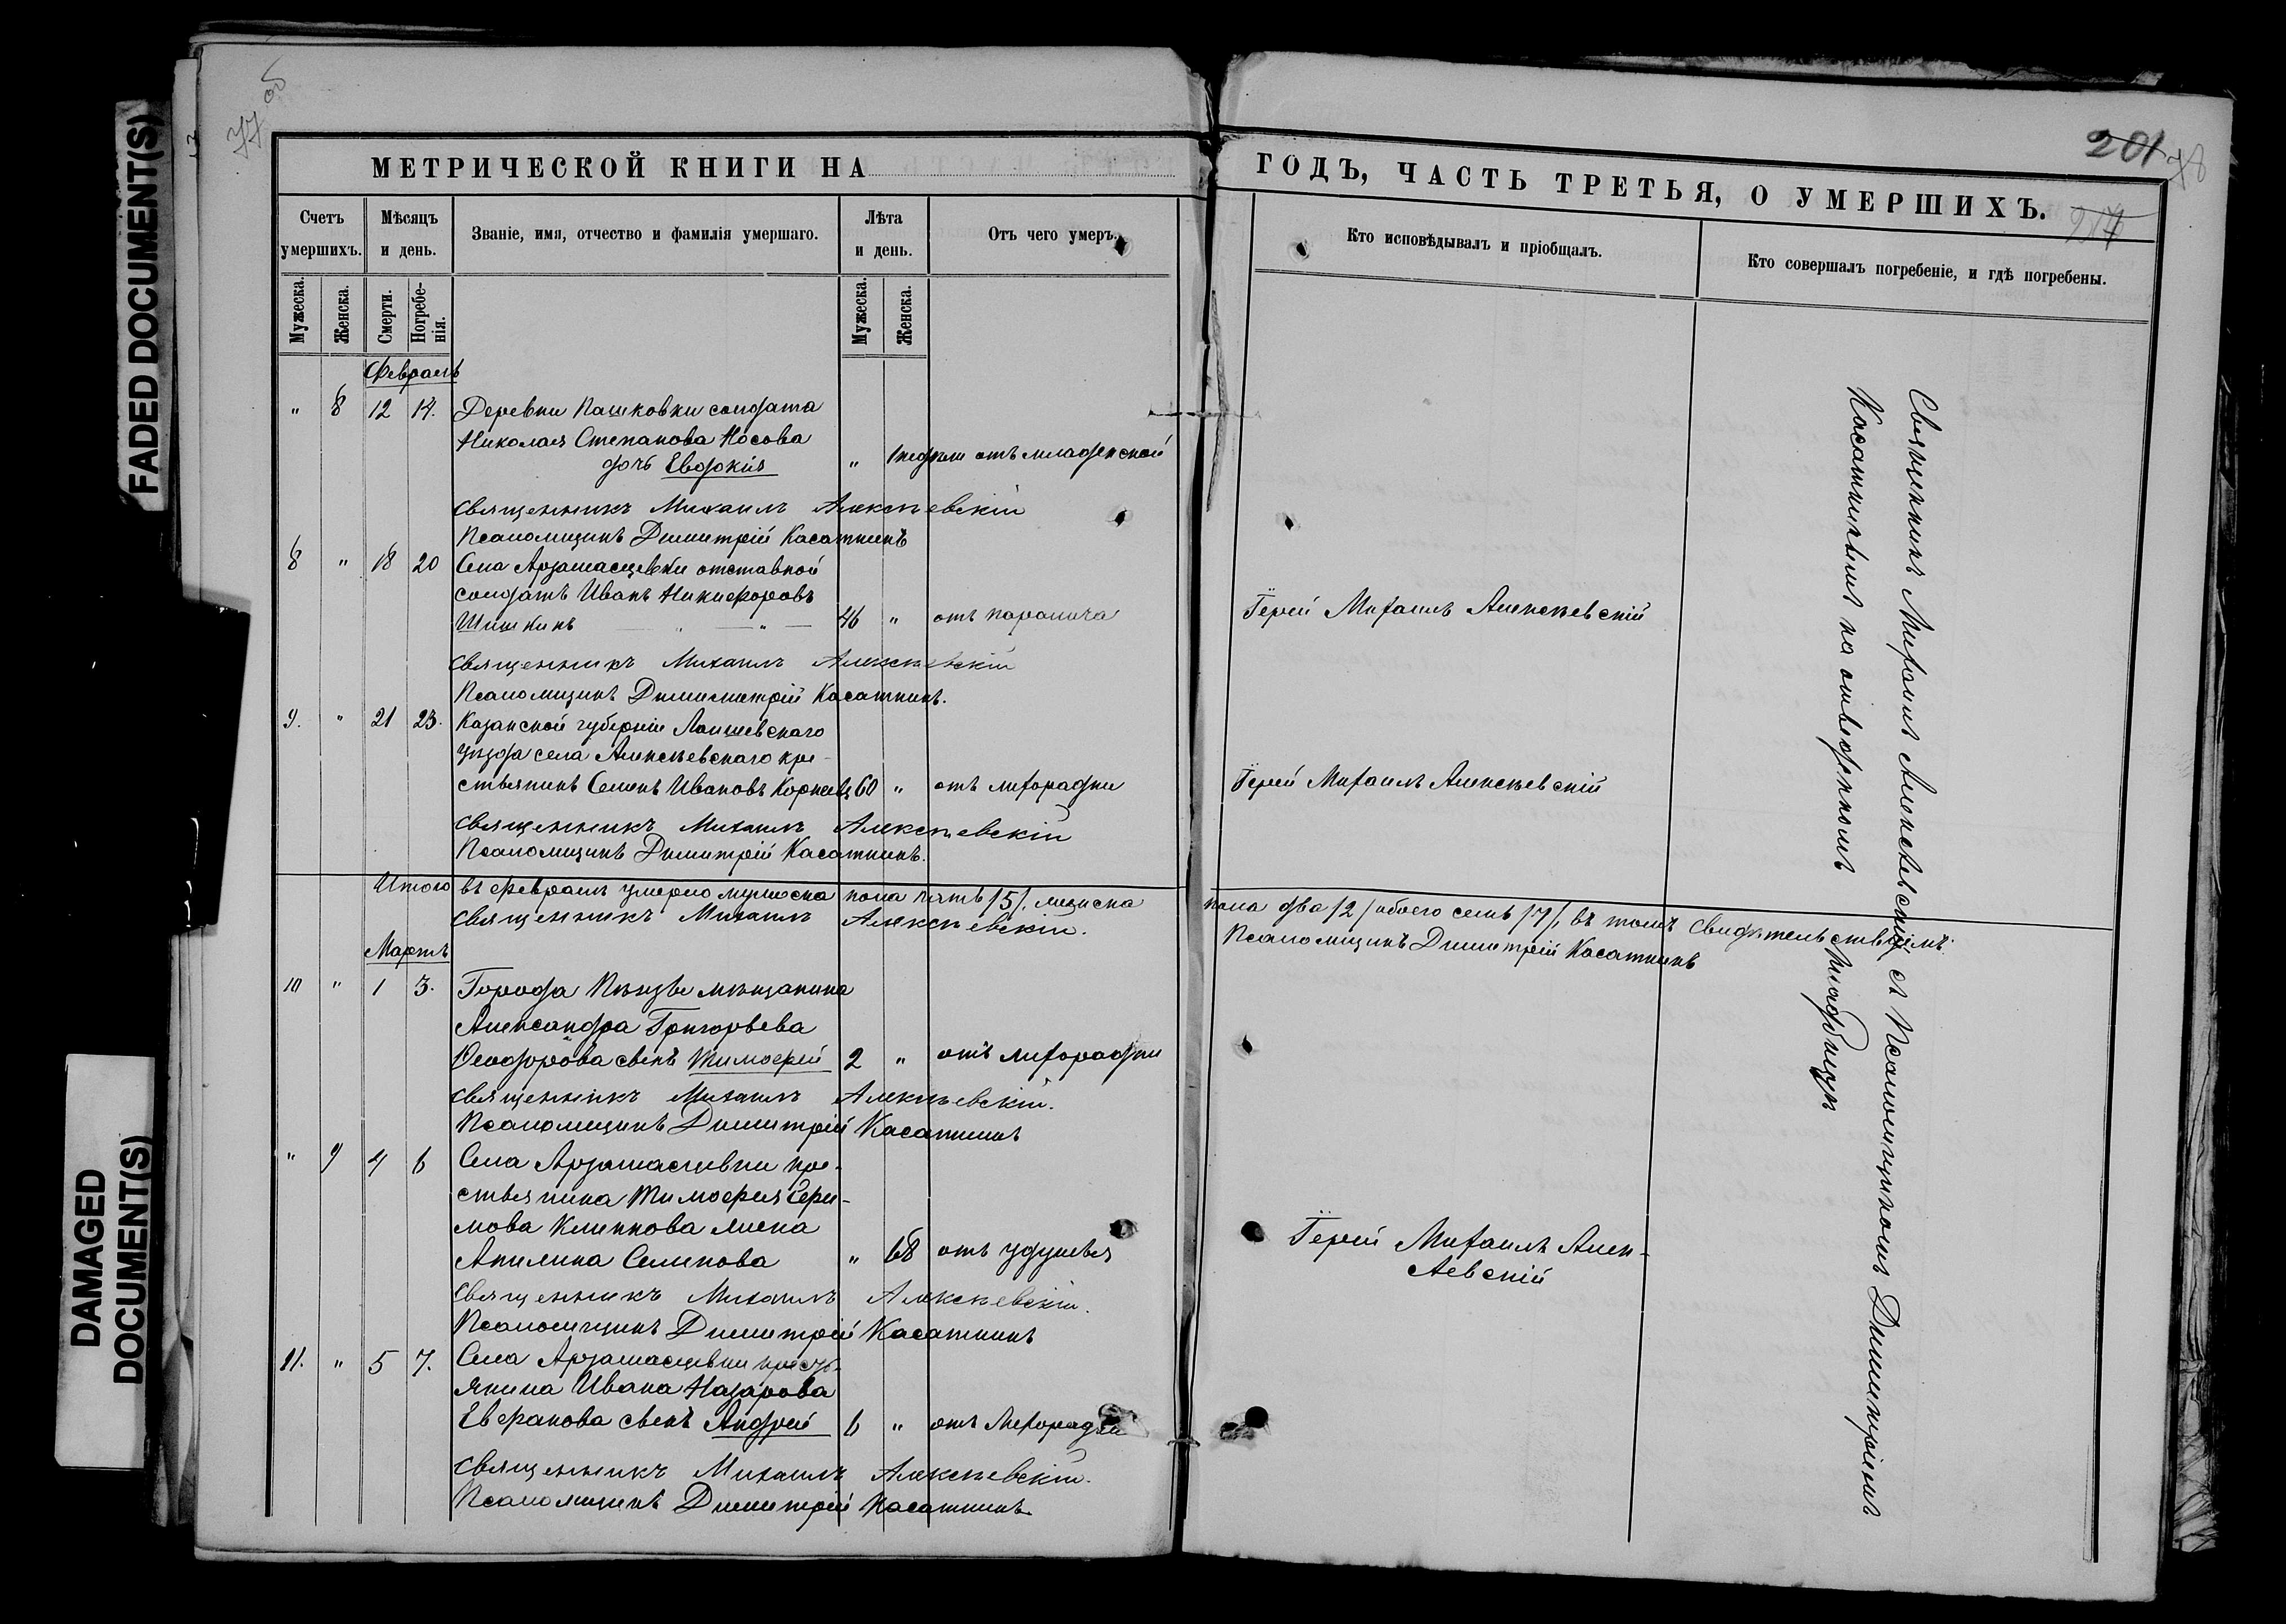 FADED DOCUMENT(S)
DAMAGED
DOCUMENT(S)
77 об
МЕТРИЧЕСКОЙ КНИГИ НА
Счетъ умершихъ.
Мѣсяцъ и день.
Званіе, имя, отчество и фамилія умершаго.
Лѣта и день.
Отъ чего умеръ.
Мужеска.
Женска.
Смерти.
Погребе-
нія.
Мужеска.
Женска.
Февраль
" 8 12 14. Деревни Пашковки солдата
Николая Степанова Носова
дочь Евдокія " 1 недѣли отъ младенской
Священникъ Михаилъ Алексѣевскій
Псаломщикъ Димитрій Касаткинъ
8 " 18 20 Села Арзамасцевки отставной
солдатъ Иванъ Никифоровъ
Шишкинъ 46 " отъ паралича
Священникъ Михаилъ Алексѣевскій
Псаломщикъ Димитрій Касаткинъ.
9. " 21 23. Казанской губерніи Лаишевскаго
уѣзда села Алексѣевскаго кре-
стьянинъ Семенъ Ивановъ Корневъ 60 " отъ лихорадки
Священникъ Михаилъ Алексѣевскій
Псаломщикъ Димитрій Касаткинъ.
Итого въ февралѣ умерло мужеска пола пять /5/. женска
Священникъ Михаилъ Алексѣевскій.
Мартъ
10 " 1 3. Города Пензы мѣщанина
Александра Григорьева
Ѳеодорова сынъ Тимофей 2 " отъ лихорадки
Священникъ Михаилъ Алексѣевскій.
Псаломщикъ Димитрій Касаткинъ
" 9 4 6 Села Арзамасцевки кре-
стьянина Тимофея
Климкова жена
Акилина Семенова " 68 отъ удушья
Священникъ Михаилъ Алексѣевскій.
Псаломщикъ Димитрій Касаткинъ
11. " 5 7. Села Арзамасцевки кресть-
янина Ивана Назарова
сынъ Андрей 6 " отъ лихорадки
Священникъ Михаилъ Алексѣевскій.
Псаломщикъ Димитрій Касаткинъ.
201
78
217
ГОДЪ, ЧАСТЬ ТРЕТЬЯ, О УМЕРШИХЪ.
Кто исповѣдывалъ и пріобщалъ.
Кто совершалъ погребеніе, и гдѣ погребены.
Іерей Михаилъ Алексѣевскій
Іерей Михаилъ Алексѣевскій
пола два /2/ обоего семь /7/, въ томъ свидѣтельствуемъ:
Псаломщикъ Димитрій Касаткинъ
Іерей Михаилъ Алек-
сѣевскій
Священникъ Михаилъ Алексѣевскій съ Псаломщикомъ Димитріемъ
Касаткинымъ на отведенномъ кладбищѣ